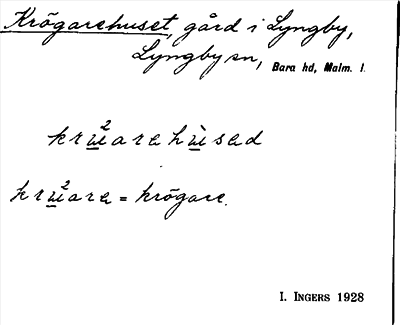 Krögarehuset, gård i Lyngby,
Lyngby sn, Bara hd, Malm. l.
krụ̀²arahụ̀sad
krụ̀²ara = krögare.
I. INGERS 1928